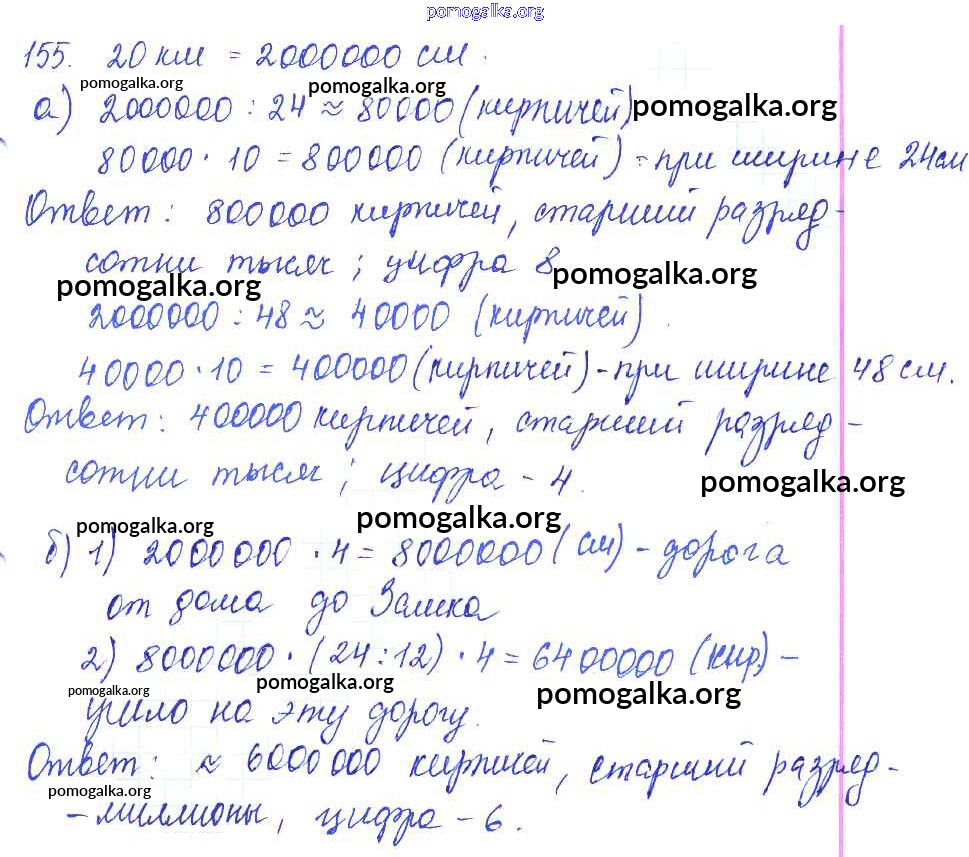 pomogalka.org
155. 20 км = 2000000 см.
pomogalka.org pomogalka.org
а) 2000000 : 24 ≈ 80000 (кирпичей) pomogalka.org
80000 · 10 = 800000 (кирпичей) - при ширине 24см
Ответ: 800000 кирпичей, старший разряд -
сотни тысяч; цифра 8
pomogalka.org pomogalka.org
2000000 : 48 ≈ 40000 (кирпичей).
40000 · 10 = 400000 (кирпичей) - при ширине 48 см.
Ответ: 400000 кирпичей, старший разряд -
сотни тысяч; цифра - 4.
pomogalka.org
pomogalka.org pomogalka.org
б) 1) 2000000 · 4 = 8000000 (см) - дорога
от дома до Замка
2) 8000000 · (24 : 12) · 4 = 6400000 (кир.) -
pomogalka.org pomogalka.org pomogalka.org
ушло на эту дорогу.
Ответ: ≈ 6000000 кирпичей, старший разряд -
pomogalka.org
- миллионы, цифра - 6.